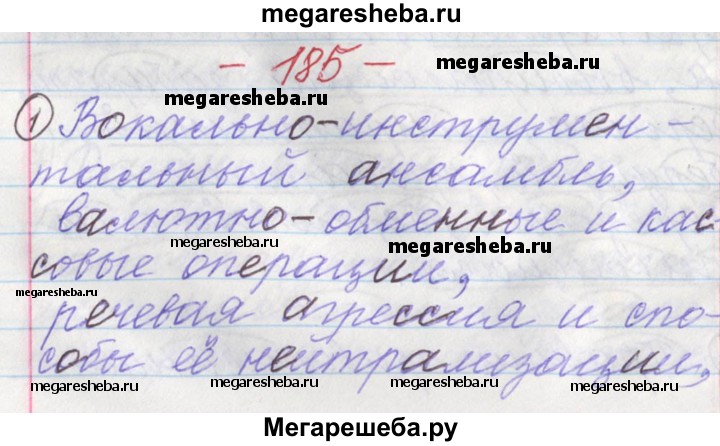 megaresheba.ru
- 185 -
megaresheba.ru
megaresheba.ru
1 Вокально-инструмен-
megaresheba.ru
тальный ансамбль,
валютно-обменные и кас
megaresheba.ru
megaresheba.ru
совые операции,
megaresheba.ru
речевая агрессия и спо-
собы её нейтрализации,
megaresheba.ru
megaresheba.ru
megaresheba.ru
megaresheba.ru
Мегарешеба.ру